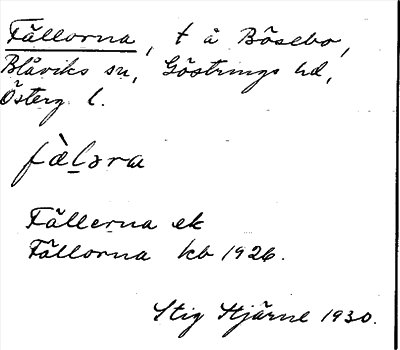 Fällorna, t å Bösebo,
Blåviks sn, Göstrings hd,
Österg. l.
fæ̀lərna
Fällerna ek
Fällorna kb 1926.
Stig Stjärne 1930.